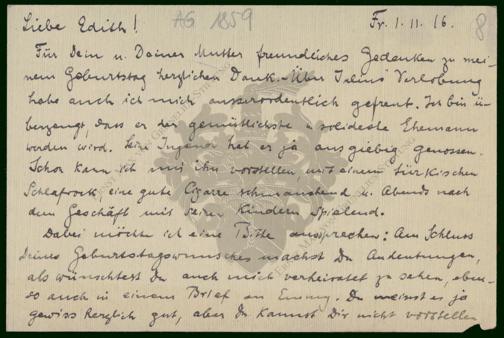 AG 1859
Liebe Edith!
Fr. 1. 11. 16.
8
Für Dein u. Deiner Mutter freundliches Gedenken zu mei-
nem Geburtstag herzlichen Dank. - Über Verlobung
habe auch ich mich ausserordentlich gefreut. Ich bin ü-
berzeugt, dass er der gemütlichste u. solideste Ehemann
werden wird. Seine Jugend hat er ja ausgiebig genossen.
Schon kann ich mir ihn vorstellen, mit einem türkischen
Schlafrock, eine gute Cigarre schmauchend u. Abends nach
dem Geschäft mit seinen Kindern spielend.
Dabei möcht ich eine Bitte aussprechen: Am Schluss
Deines Geburtstagswunsches machst Du Andeutungen,
als wünschtest Du auch mich verheiratet zu sehen, eben-
so auch in einem Brief an Emmy. Du meinst es ja
gewiss herzlich gut, aber Du kannst Dir nicht vorstellen